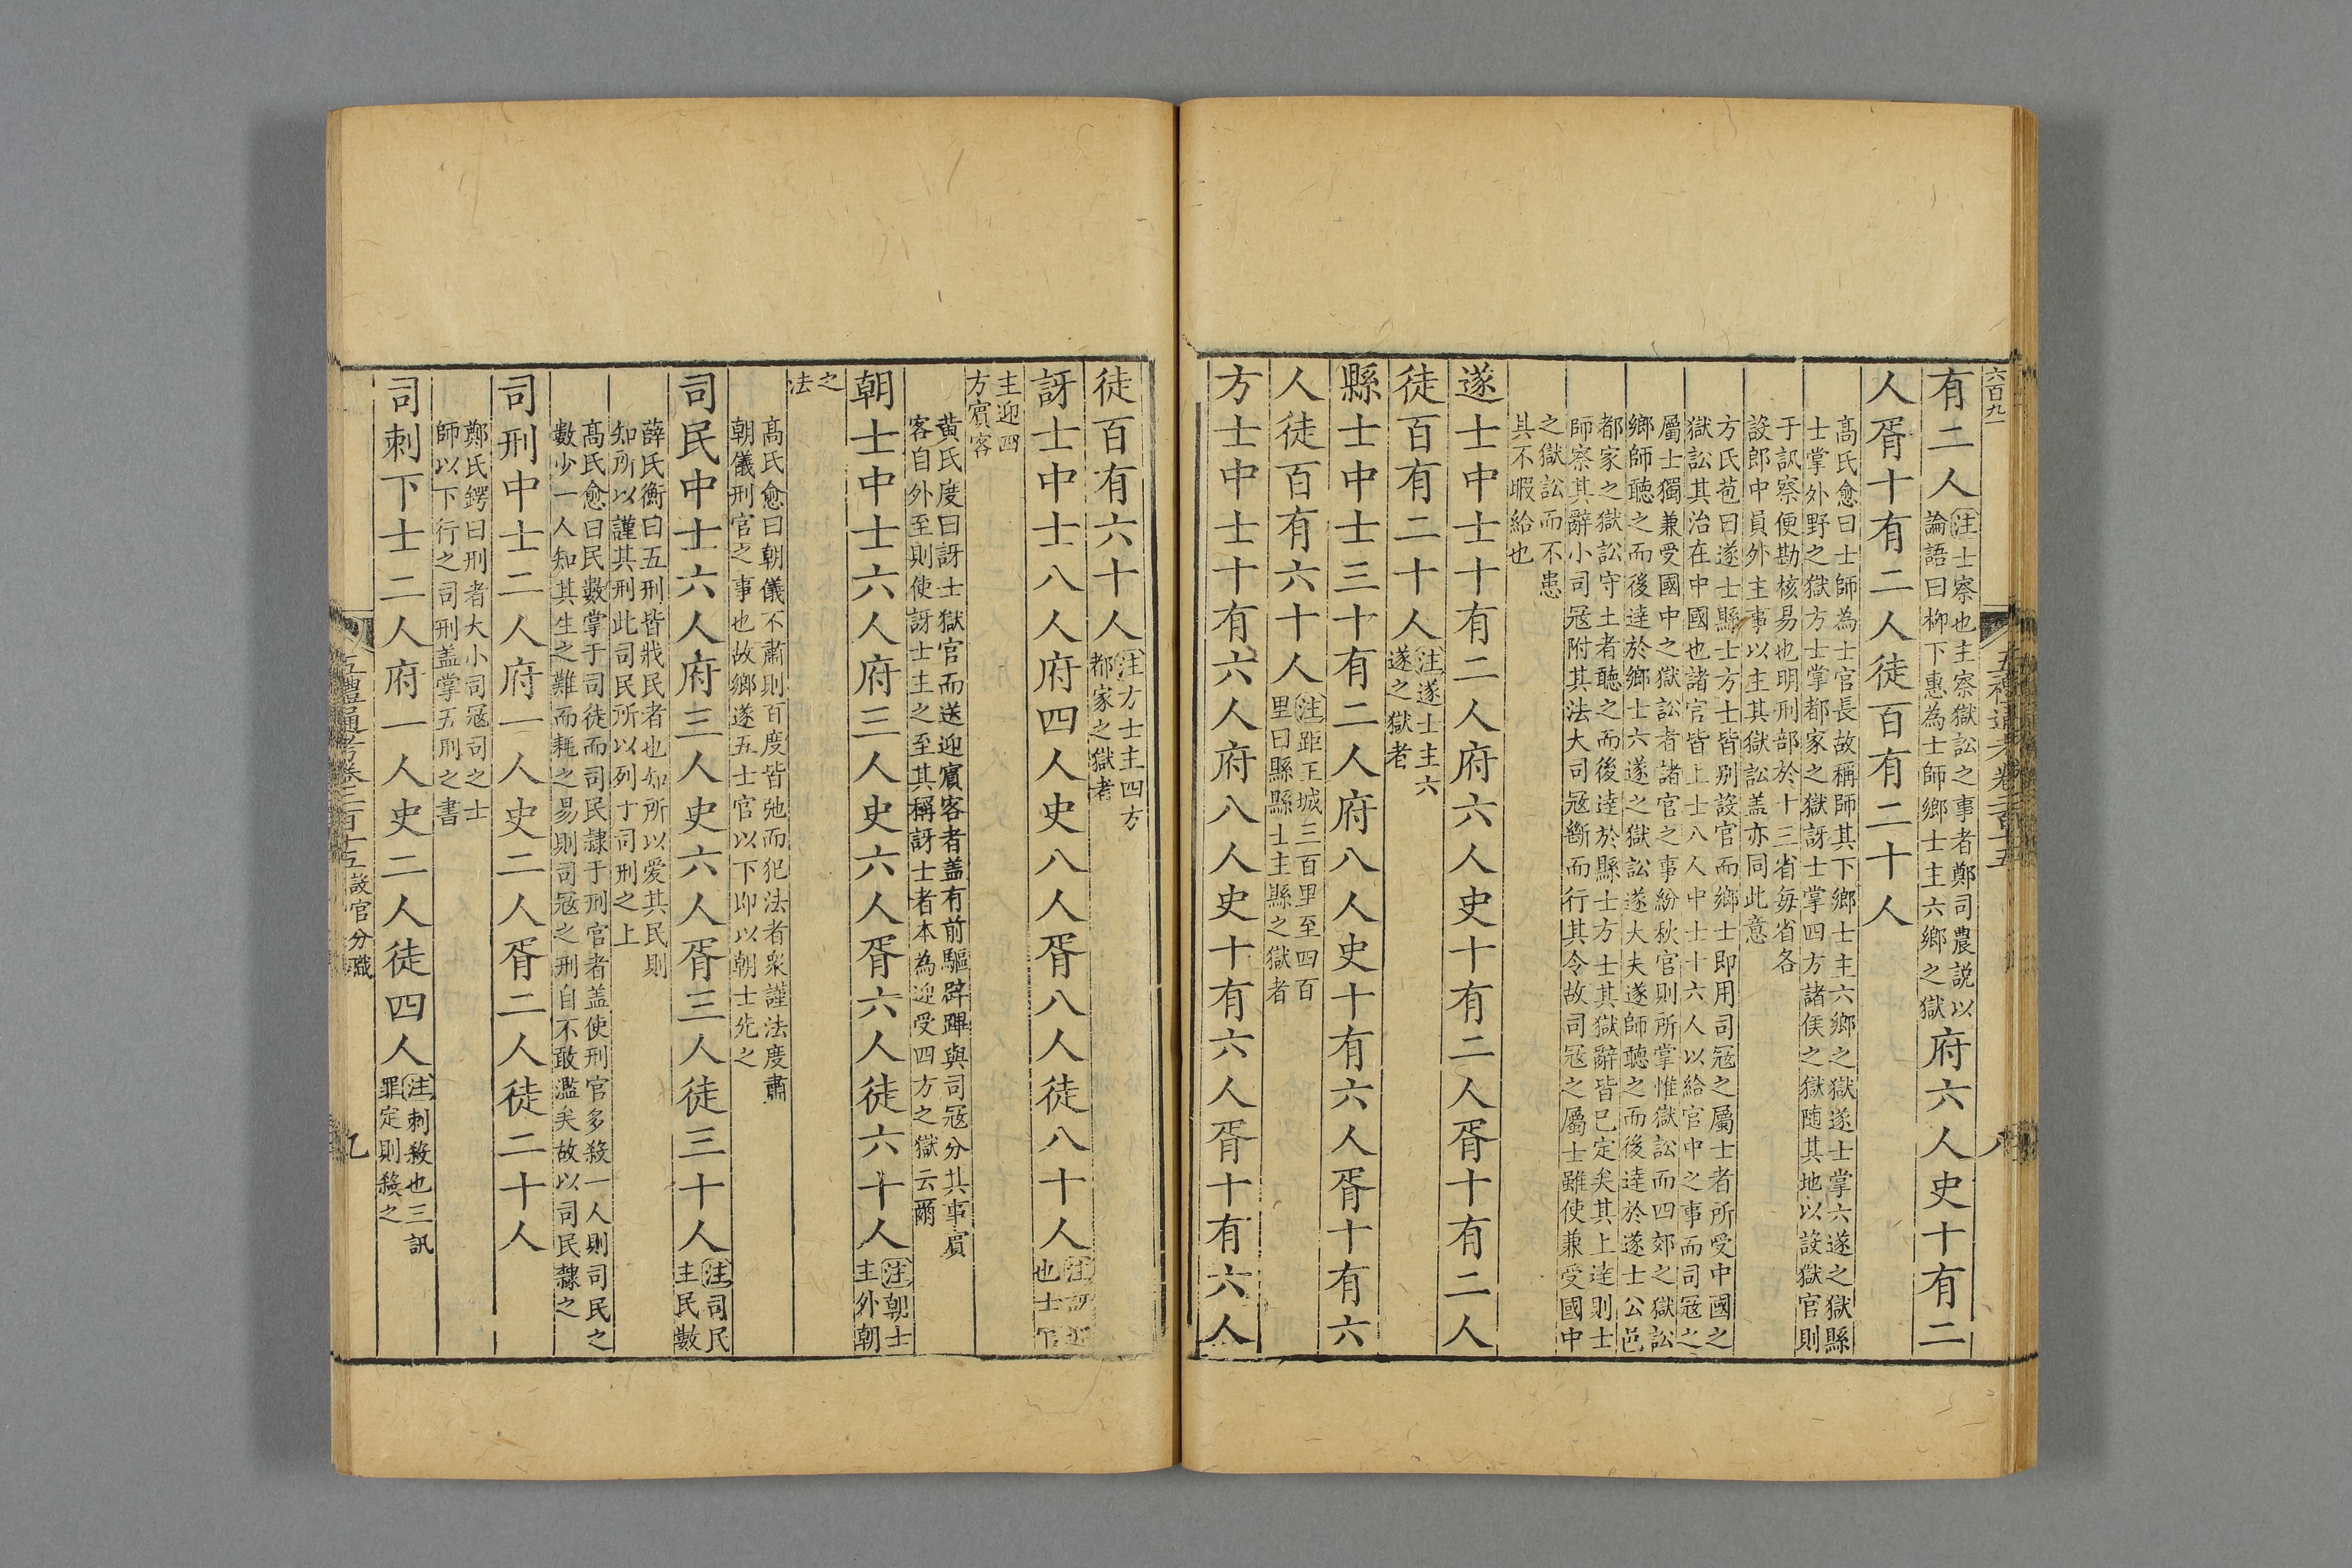 六百九一
五禮通考卷二百十五
八
有二人
注士察也主察獄訟之事者鄭司農說以
論語曰柳下惠為士師鄉士主六鄉之獄
府六人史十有二
人胥十有二人徒百有二十人
高氏愈曰士師為士官長故稱師其下鄉士主六鄉之獄遂士掌六遂之獄縣
士掌外野之獄方士掌都家之獄訝士掌四方諸侯之獄随其地以設獄官則
于訊察便勘核易也明刑部於十三省每省各
設郎中員外主事以主其獄訟盖亦同此意
方氏苞曰遂士縣士方士皆別設官而鄉士即用司寇之屬士者所受中國之
獄訟其治在中國也諸官皆上士八人中士十六人以給官中之事而司寇之
屬士獨兼受國中之獄訟者諸官之事紛秋官則所掌惟獄訟而四郊之獄訟
鄉師聽之而後逹於鄉士六遂之獄訟遂大夫遂師聽之而後逹於遂士公邑
都家之獄訟守土者聽之而後逹於縣士方士其獄辭皆已定矣其上逹則士
師察其辭小司寇附其法大司寇斷而行其令故司寇之屬士雖使兼受國中
之獄訟而不患
其不暇給也
遂士中士十有二人府六人史十有二人胥十有二人
徒百有二十人
注遂士主六
遂之獄者
縣士中士三十有二人府八人史十有六人胥十有六
人徒百有六十人
注距王城三百里至四百
里曰縣縣士主縣之獄者
方士中士十有六人府八人史十有六人胥十有六人
徒百有六十人
注方士主四方
都家之獄者
訝士中士八人府四人史八人胥八人徒八十人
注訝迎
也士官
主迎四
方賓客
黄氏度曰訝士獄官而送迎賓客者盖有前驅辟蹕與司寇分其事賓
客自外至則使訝士主之至其稱訝士者本為迎受四方之獄云爾
朝士中士六人府三人史六人胥六人徒六十人
注朝士
主外朝
之
法
高氏愈曰朝儀不肅則百度皆弛而犯法者衆謹法度肅
朝儀刑官之事也故鄉遂五士官以下即以朝士先之
司民中士六人府三人史六人胥三人徒三十人
注司民
主民數
薛氏衡曰五刑皆戕民者也知所以爱其民則
知所以謹其刑此司民所以列于司刑之上
高氏愈曰民數掌于司徒而司民隷于刑官者盖使刑官多殺一人則司民之
數少一人知其生之難而耗之易則司寇之刑自不敢濫矣故以司民隷之
司刑中士二人府一人史二人胥二人徒二十人
鄭氏鍔曰刑者大小司寇司之士
師以下行之司刑盖掌五刑之書
司刺下士二人府一人史二人徒四人
注刺殺也三訊
罪定則殺之
五禮通考卷二百十五設官分職
九